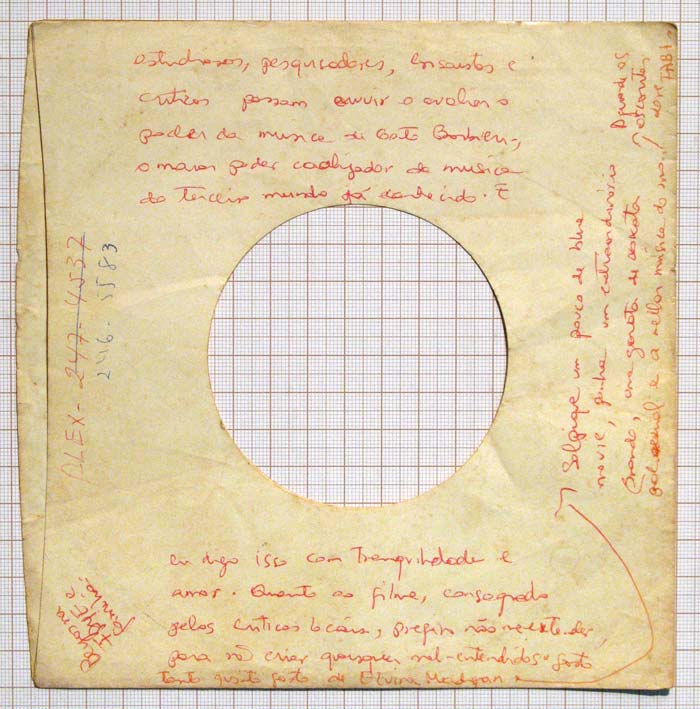 estudiosos, pesquisadores, ensaistas e
criticos possam ouvir e avaliar o
poder da musica de Gato Barbieri,
o maior poder catalizador da musica
do Terceiro mundo já conhecido. E
eu digo isso com tranquilidade e
amor. Quanto ao filme, consagrado
pelos criticos locais, prefiro não me extender
para não criar quaisquer mal-entendidos. gosto
tanto quanto gosto de Elvira Madigan
Salpique um pouco de blue
movie, ganhe um extraordinário
Brando, uma garota de
e a melhor música do
ALEX - 247-4537
246-5583